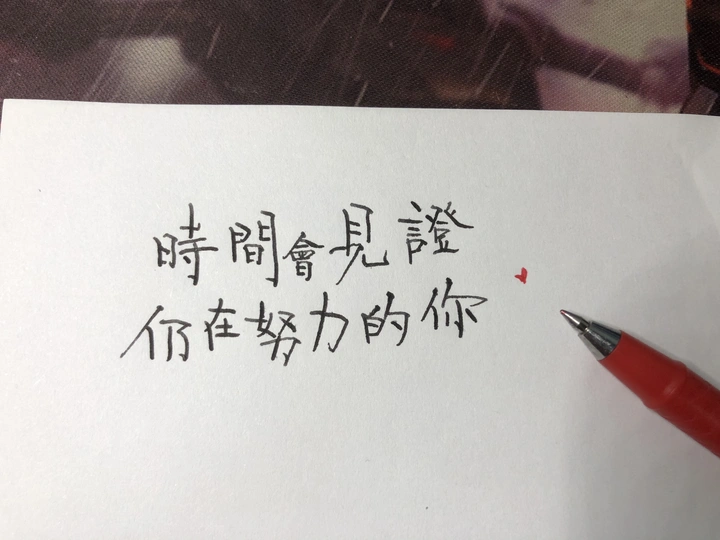 時間會見證
仍在努力的你